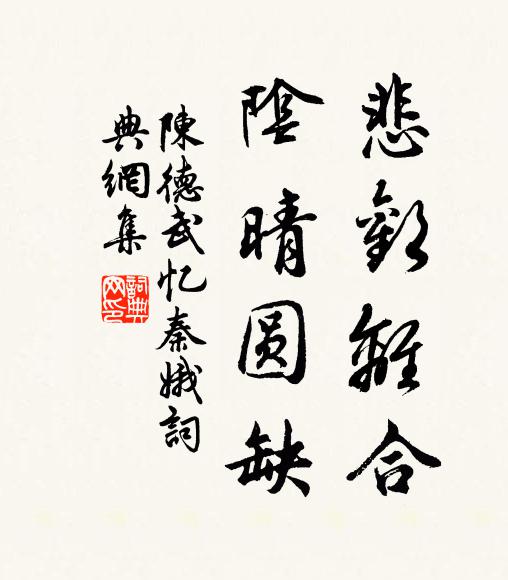 悲歡離合
陰晴圆缺
陳德武忆秦娥詞
典網集
詞典
网印